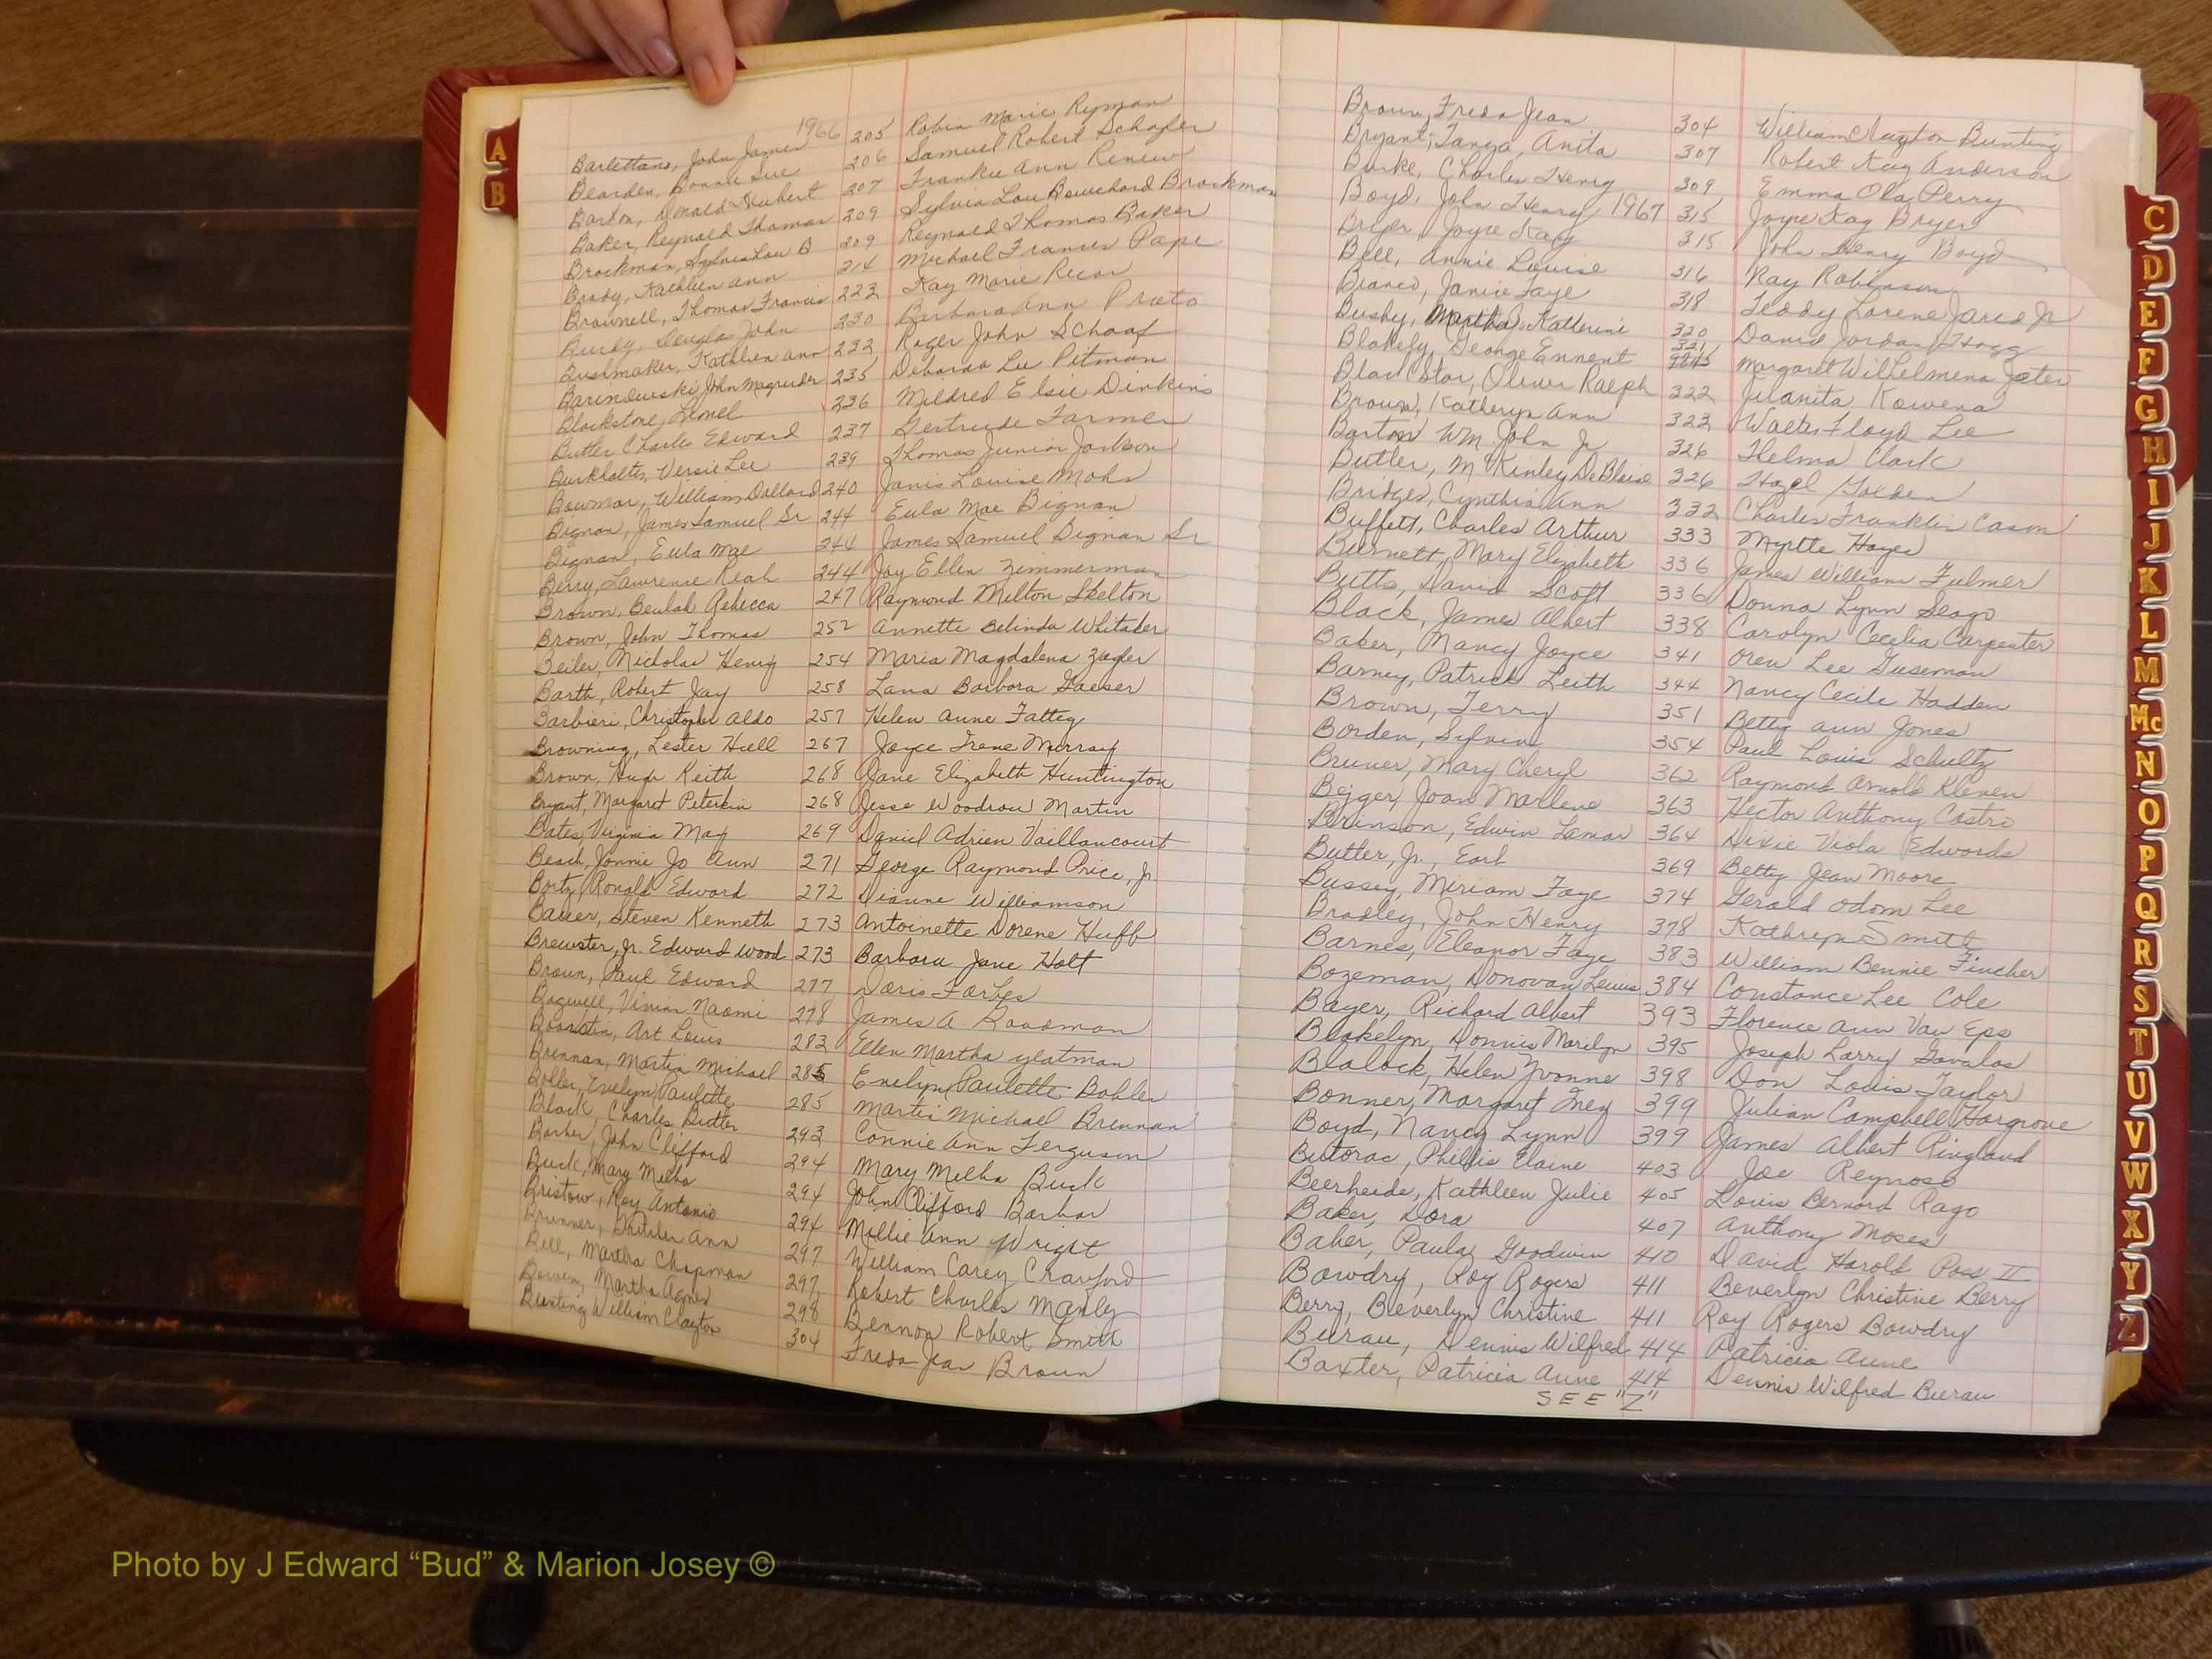 A
B
1966
Barlettano, John James 205 Robin Marie Ryman
Bearden, Bonnie Sue 206 Samuel Robert Schafer
Barton, Donald Hubert 207 Frankie Ann Renew
Baker, Reynold Thomas 209 Sylvia Lou Bouchard Brockman
Brockman, Sylvia Lou B 209 Reynold Thomas Baker
Brady, Kathleen Ann 214 Michael Francis Pape
Brownell, Thomas Francis 223 Kay Marie
Douglas John 230 Barbara Ann Prato
Bushmaker, Kathleen Ann 232 Roger John Schaaf
John Magruder 235 Deborah Lee Pitman
Blackstone, Lionel 236 Mildred Elsie Dinkins
Butler Charles Edward 237 Gertrude Farmer
Burkhalter, Versie Lee 239 Thomas Junior Jackson
Bowmar, William Dollard 240 Janis Louise Mohr
Bignan, James Samuel Sr 244 Eula Mae Bignan
Bignan, Eula Mae 244 James Samuel Bignan Sr
Berry, Lawrence Keah 244 Joy Ellen Zimmerman
Brown, Beulah Rebecca 247 Raymond Milton Skelton
Brown, John Thomas 252 Annette Belinda Whitaker
Beiler, Nicholas Henry 254 Maria Magdalena Zagler
Barth, Robert Jay 258 Lana Barbora Gaeser
Barbieri, Christopher Aldo 257 Helen Anne Fatteg
Browning, Lester Hull 267 Joyce Irene Murray
Brown, Hugh Keith 268 Jane Elizabeth Huntington
Bryant, Margaret Peterkin 268 Jesse Woodrow Martin
Bates, Virginia May 269 Daniel Adrien Vaillancourt
Beach, Jonnie Jo Ann 271 George Raymond Price, Jr.
Bortz, Ronald Edward 272 Dianne Williamson
Bauer, Steven Kenneth 273 Antoinette Dorene Huff
Brewster, Jr. Edward Wood 273 Barbara Jane Holt
Broun, Paul Edward 277 Doris Forbes
Bagwell, Vivian Naomi 278 James A. Roodman
Boorstin, Art Louis 283 Ellen Martha Yeatman
Brennan, Martin Michael 285 Evelyn Paulette Bohler
Boller, Evelyn Paulette 285 Martin Michael Brennan
Black Charles Butler 293 Connie Ann Ferguson
Barber, John Clifford 294 Mary Melba Buck
Buck, Mary Melba 294 John Clifford Barbar
Bristow, Roy Antonio 294 Millie Ann Wright
Brunner, Ann 297 William Carey Crawford
Bell, Martha Chapman 297 Robert Charles Manley
Bowen, Martha Agnes 298 Bennon Robert Smith
Bunting William Clayton 304 Freda Jean Broun
Broun, Freda Jean 304 William Clayton Bunting
Bryant, Tanya, Anita 307 Robert Kay Anderson
Burke, Charles Henry 309 Emma Ola Perry
Boyd, John Henry 1967 315 Joyce Kay Bryer
Bryer, Joyce Kay 315 John Henry Boyd
Bell, Annie Louise 316 Ray Robinson
Janice Faye 318 Teddy Lorene Jared Jr
Busby, Martha Katherine 320 David Jordan Hogg
Blakely, George Ennent 321 Margaret Wilhelmena Jeter
Oliver Ralph 322 Juanita Rowena
Broun, Katheryn Ann 323 Walter Floyd Lee
Barton Wm. John Jr 326 Thelma Clark
Butler, McKinley DeBlaise 326 Hazel Golden
Bridges, Cynthia Ann 332 Charles Franklin Cason
Buffett, Charles Arthur 333 Myrtle Hayes
Burnett, Mary Elizabeth 336 James William Fulmer
Butts, David Scott 336 Donna Lynn Seago
Black, James Albert 338 Carolyn Cecelia Carpenter
Baker, Nancy Joyce 341 Oren Lee Guseman
Barney, Patrick Leith 344 Nancy Cecile Hadden
Brown, Terry 351 Betty Ann Jones
Borden, Sylvia 354 Paul Louis Schultz
Bruner, Mary Cheryl 362 Raymond Arnold Kleven
Joan Marlene 363 Hector Anthony Castro
Brinson, Edwin Lamar 364 Dixie Viola Edwards
Butler, Jr., Earl 369 Betty Jean Moore
Bussey, Miriam Faye 374 Gerald Odom Lee
Bradley, John Henry 378 Kathryn Smith
Barnes, Eleanor Faye 383 William Bennie Fincher
Bozeman, Donovan Lewis 384 Constance Lee Cole
Bayer, Richard Albert 393 Florence Ann Van Eps
Blakelyn, Donnis Marilyn 395 Joseph Larry Gavalas
Blalock, Helen Yvonne 398 Don Louis Taylor
Bonner, Margaret Inez 399 Julian Campbell Hargrove
Boyd, Nancy Lynn 399 James Albert Ringland
Butorac, Phillis Elaine 403 Joe Reynoso
Beerheide, Kathleen Julie 405 Louis Bernard Rago
Baker, Dora 407 Anthony Moses
Baker, Paula Goodwin 410 David Harold Poss II
Bowdry, Roy Rogers 411 Beverlyn Christine Berry
Berry, Beverlyn Christine 411 Roy Rogers Bowdry
Burau, Dennis Wilfred 414 Patricia Anne
Baxter, Patricia Anne 414 Dennis Wilfred Burau
SEE "Z"
C
D
E
F
G
H
I
J
K
L
M
Mc
N
O
P
Q
R
S
T
U
V
W
X
Y
Z
Photo by J Edward “Bud” & Marion Josey ©